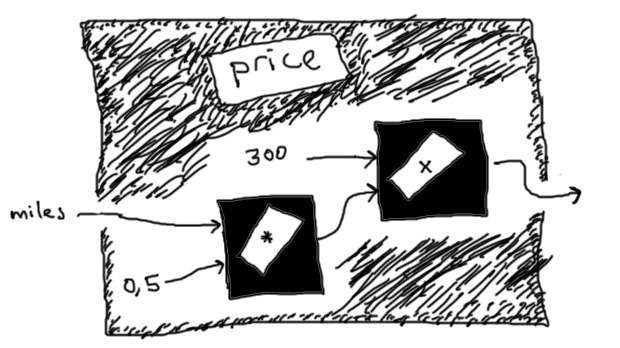 price
300
x
miles
*
0,5